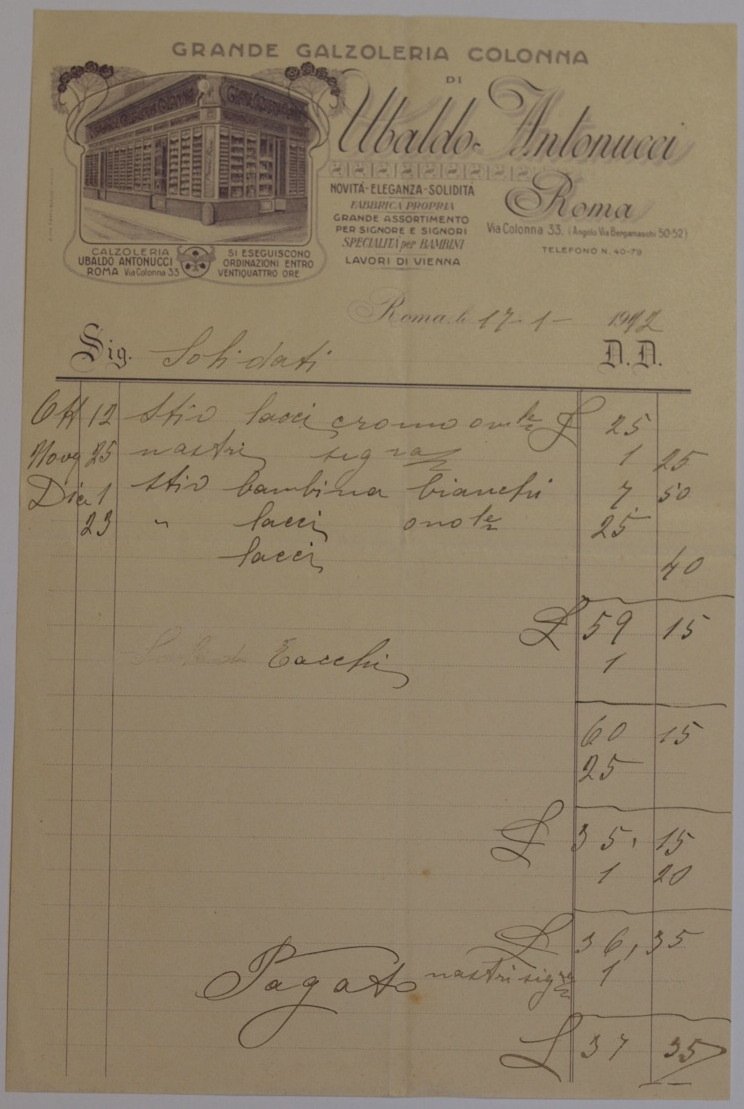 GRANDE CALZOLERIA COLONNA
DI
Ubaldo Antonucci
Roma
Via Colonna 33. (Angolo Via Bergamaschi 50-52)
TELEFONO N. 40-79
NOVITÀ - ELEGANZA - SOLIDITÀ
FABBRICA PROPRIA
GRANDE ASSORTIMENTO
PER SIGNORE E SIGNORI
SPECIALITÀ per BAMBINI
LAVORI DI VIENNA
CALZOLERIA
UBALDO ANTONUCCI
ROMA Via Colonna 33
SI ESEGUISCONO
ORDINAZIONI ENTRO
VENTIQUATTRO ORE
Roma, li 17-1- 1912
Sig. Solidati D. D.
Ott 12 Stiv lacci cromo £ 25
Nove 25 nastri sigra 1 25
Dice 1 Stiv bambina bianchi 7 50
23 " lacci 25
lacci 40
£ 59 15
Tacchi 1
60 15
25
£ 35, 15
1 20
£ 36, 35
Pagato nastri sigra 1
£ 37 35